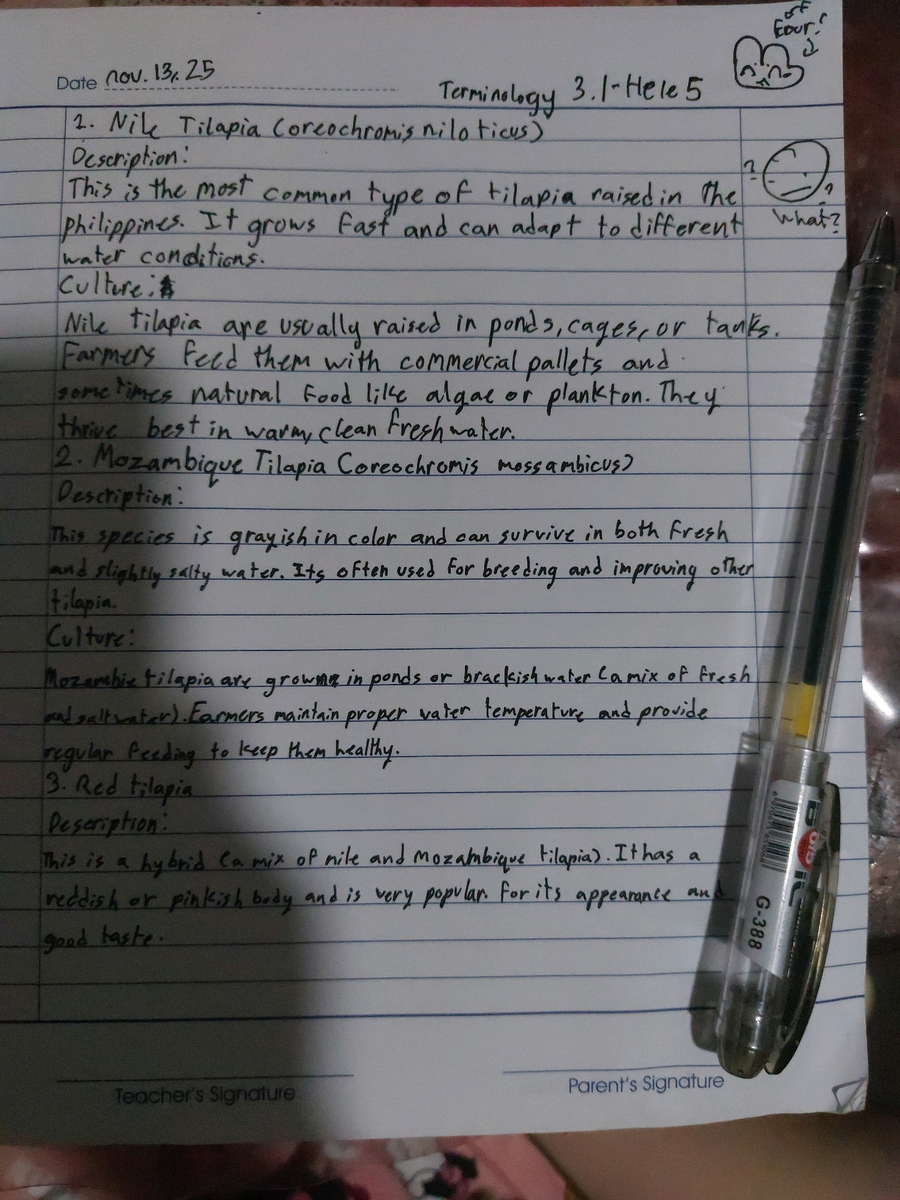 off
Four?
Date nov. 13, 25
Terminology 3.1-Hele 5
1. Nile Tilapia (oreochromis niloticus)
Description:
This is the most common type of tilapia raised in the
philippines. It grows fast and can adapt to different
water conditions.
? ?
What?
Culture:
Nile tilapia are usually raised in ponds, cages, or tanks.
Farmers feed them with commercial pallets and
sometimes natural food like algae or plankton. They
thrive best in warm, clean freshwater.
2. Mozambique Tilapia (oreochromis mossambicus)
Description:
This species is grayish in color and can survive in both fresh
and slightly salty water. Its often used for breeding and improving other
tilapia.
Culture:
Mozambie tilapia are grown in ponds or brackish water (a mix of fresh
and saltwater). Farmers maintain proper water temperature and provide
regular feeding to keep them healthy.
3. Red tilapia
Description:
This is a hybrid (a mix of nile and Mozambique tilapia). It has a
reddish or pinkish body and is very popular for its appearance and
good taste.
G-388
Teacher's Signature
Parent's Signature